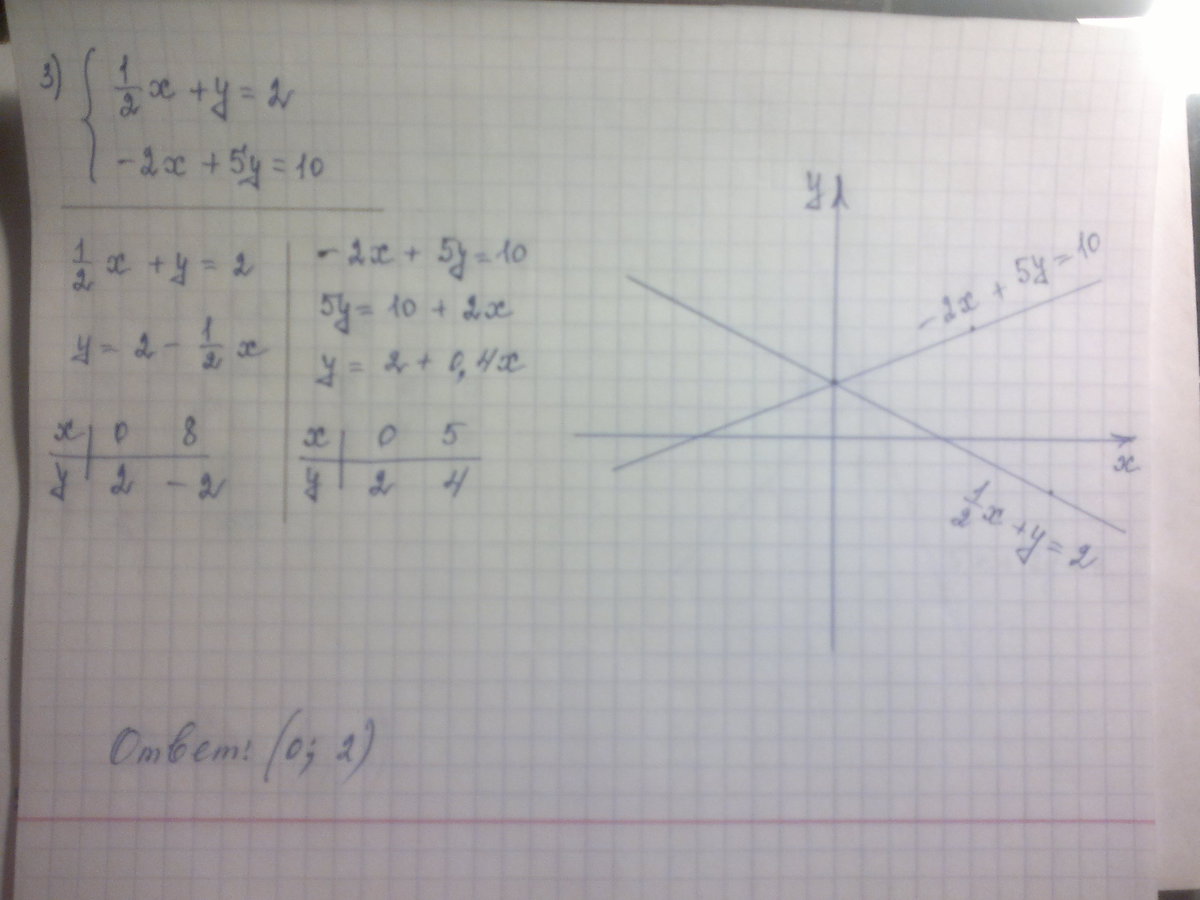 3) { 1/2 x + y = 2
-2x + 5y = 10
1/2 x + y = 2
y = 2 - 1/2 x
x | 0 8
y | 2 -2
-2x + 5y = 10
5y = 10 + 2x
y = 2 + 0,4x
x | 0 5
y | 2 4
y
-2x + 5y = 10
x
1/2 x + y = 2
Ответ: (0; 2)